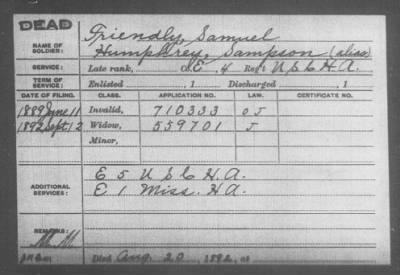 DEAD
NAME OF SOLDIER: Friendly, Samuel
Humphrey, Sampson (alias)
SERVICE: Late rank, Co. E. 4 Reg't U S C H. A.
TERM OF SERVICE: Enlisted , 1 Discharged , 1
DATE OF FILING. CLASS. APPLICATION NO. LAW. CERTIFICATE NO.
1889 June 11 Invalid, 710333 O J
1892 Sept. 12 Widow, 559701 J
Minor,
ADDITIONAL SERVICES: E 5 U S C H. A.
E 1 Miss. H A.
REMARKS:
Died Aug. 20, 1892, at